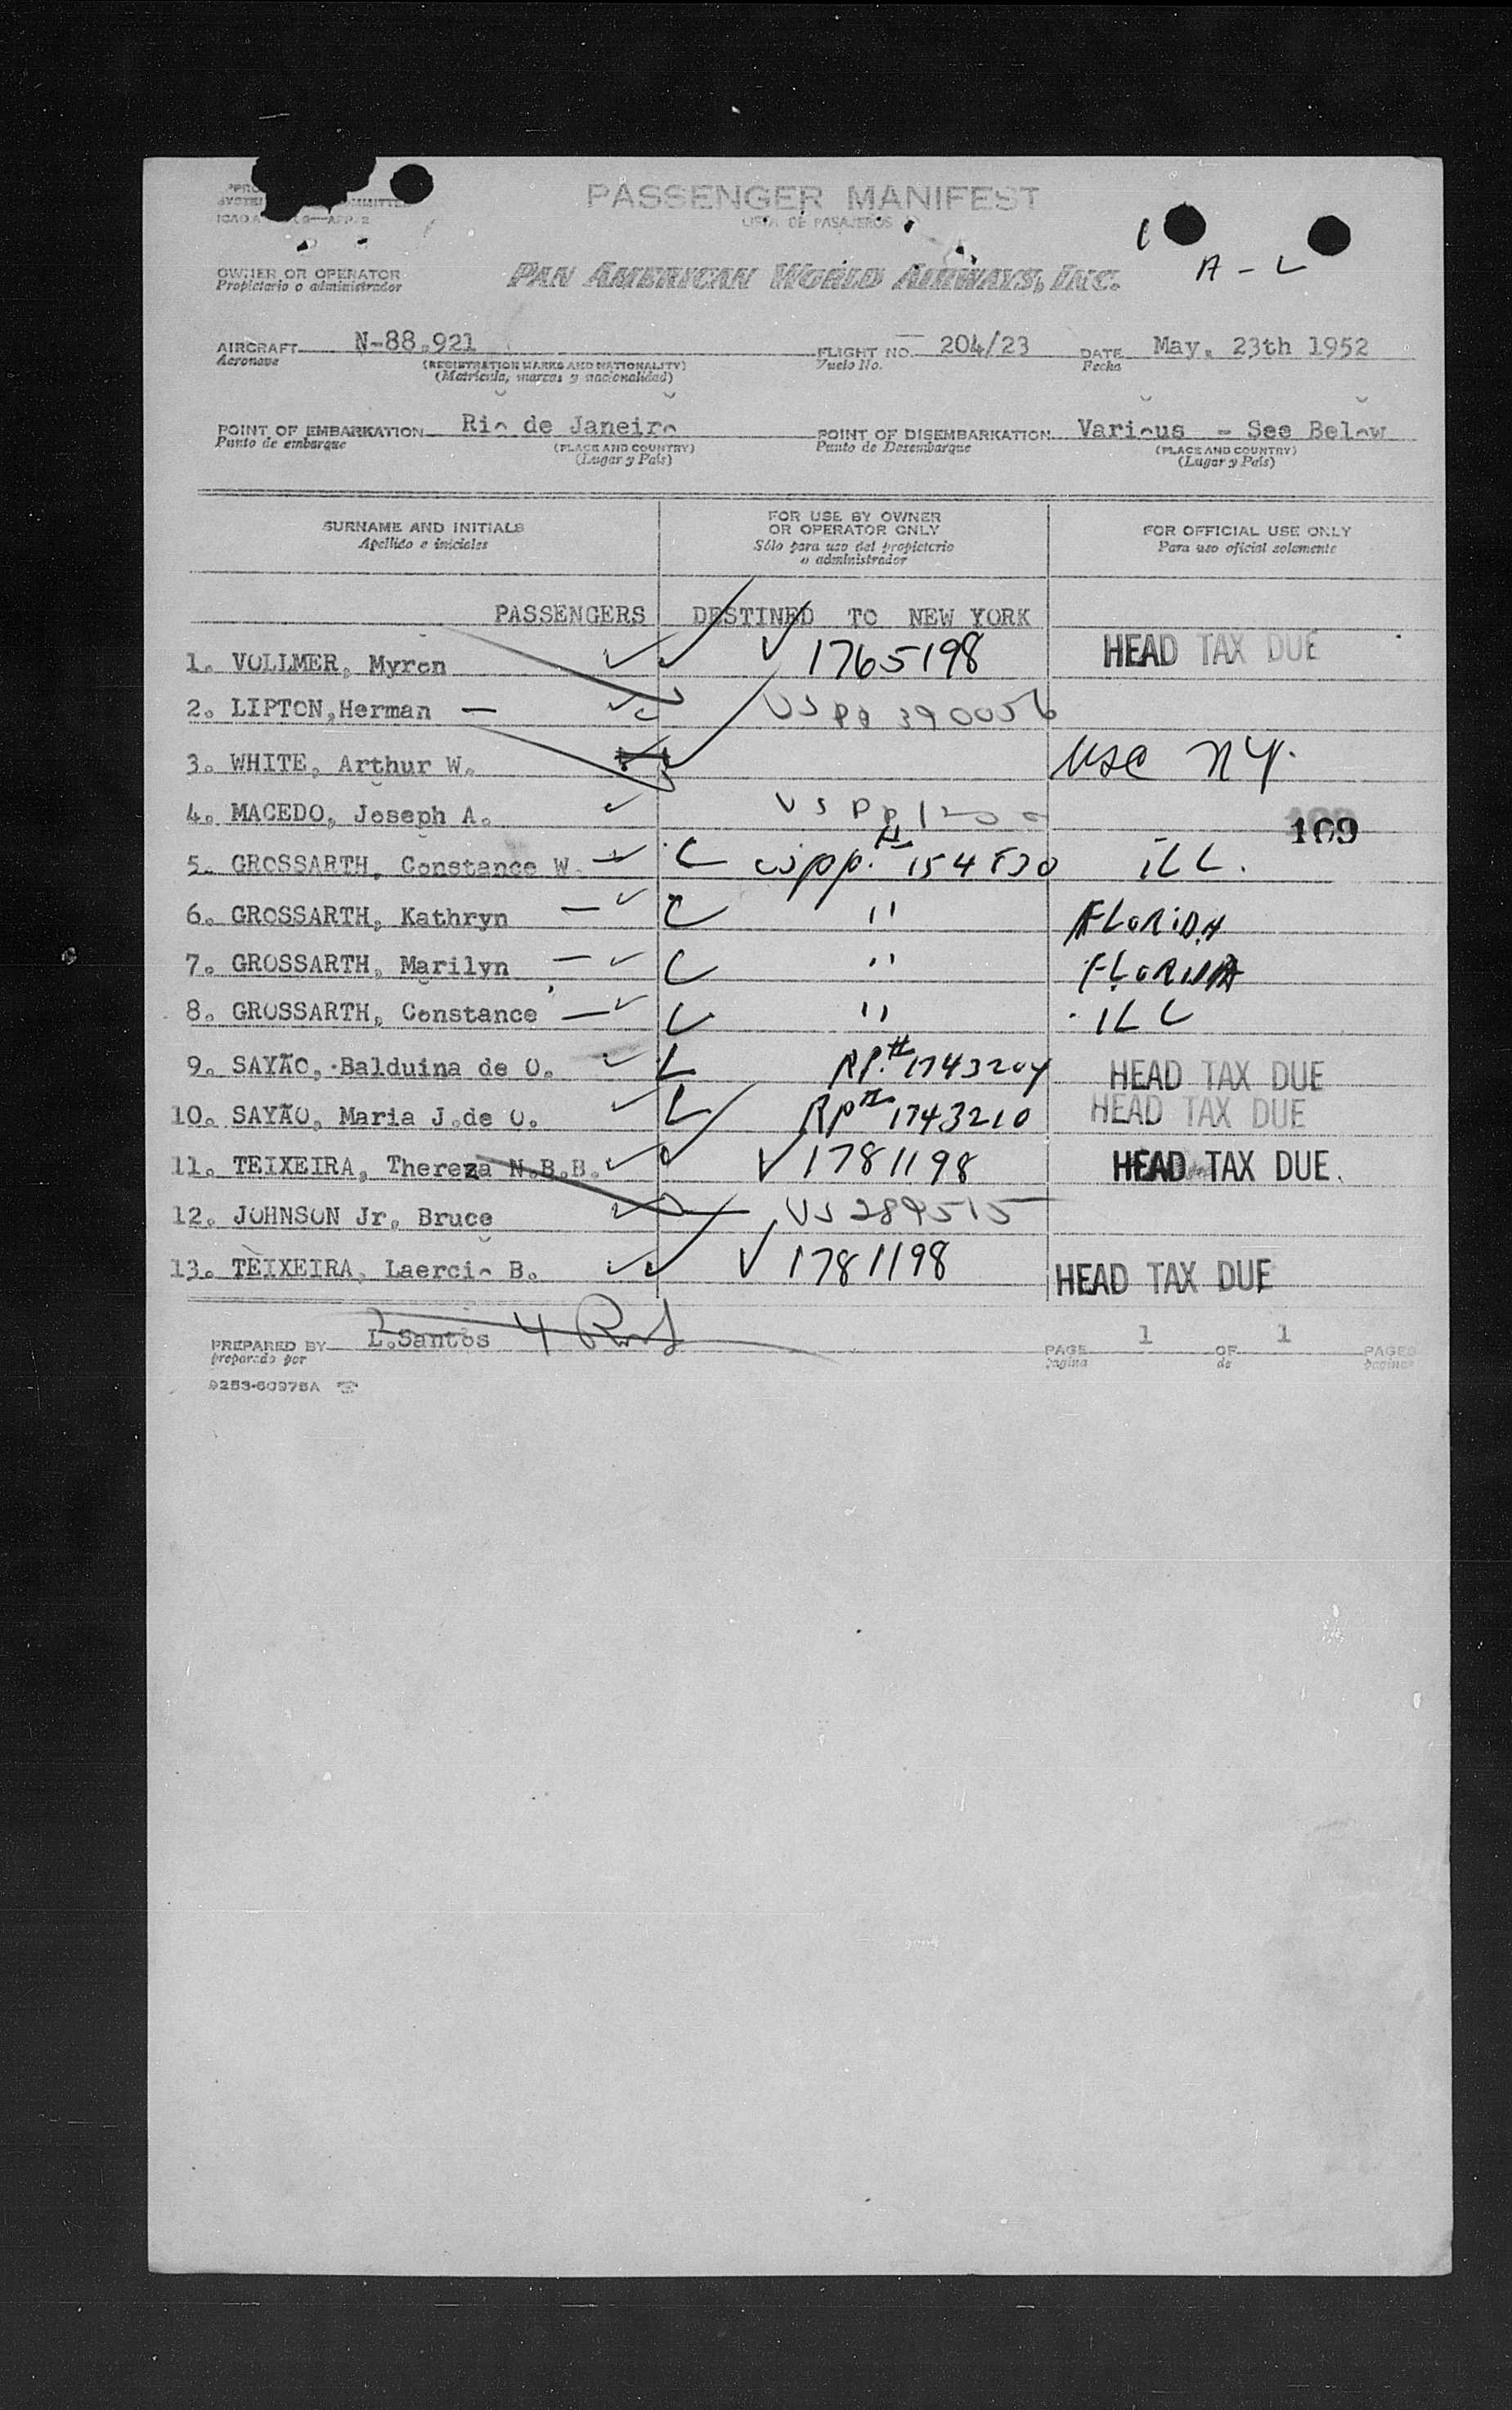 PASSENGER MANIFEST
LISTA DE PASAJEROS
A - L
OWNER OR OPERATOR
Propietario o administrador
PAN AMERICAN WORLD AIRWAYS, INC.
AIRCRAFT N-88.921 FLIGHT NO. 204/23 DATE May. 23th 1952
Aeronave (REGISTRATION MARKS AND NATIONALITY) Vuelo No. Fecha
(Matrícula, marcas y nacionalidad)
POINT OF EMBARKATION Rio de Janeiro POINT OF DISEMBARKATION Various - See Below
Punto de embarque (PLACE AND COUNTRY) Punto de Desembarque (PLACE AND COUNTRY)
(Lugar y País) (Lugar y País)
SURNAME AND INITIALS FOR USE BY OWNER OR OPERATOR ONLY FOR OFFICIAL USE ONLY
Apellido e iniciales Sólo para uso del propietario o administrador Para uso oficial solamente
PASSENGERS DESTINED TO NEW YORK
1. VOLLMER, Myron 1765198 HEAD TAX DUE
2. LIPTON,Herman - US pp 390056
3. WHITE, Arthur W. USC NY.
4. MACEDO, Joseph A. US pp
109
5. GROSSARTH, Constance W. USpp. # 154530 ILL.
6. GROSSARTH, Kathryn — " FLORIDA
7. GROSSARTH, Marilyn — " FLORIDA
8. GROSSARTH, Constance — " ILL
9. SAYÃO, Balduina de O. RP.# 1743204 HEAD TAX DUE
10. SAYÃO, Maria J.de O. RP# 1743210 HEAD TAX DUE
11. TEIXEIRA, Thereza N.B.B. 1781198 HEAD TAX DUE.
12. JOHNSON Jr, Bruce US 289515
13. TEIXEIRA, Laercio B. 1781198 HEAD TAX DUE
PREPARED BY L.Santos 4 PAGE 1 OF 1 PAGES
preparado por pagina de paginas
9253-60975A